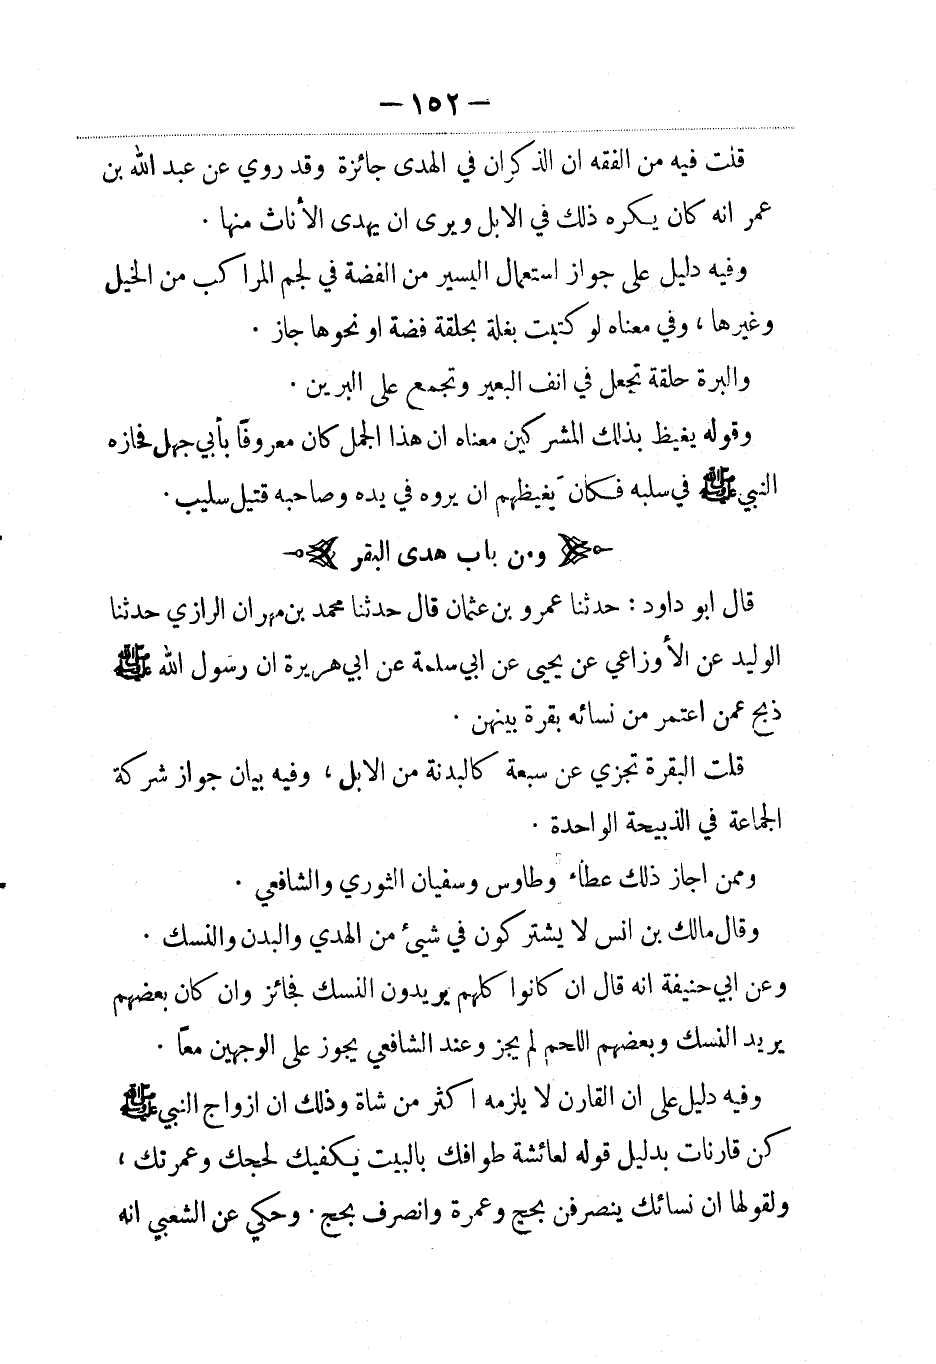 — ١٥٢ —
قلت فيه من الفقه ان الذكران في الهدى جائزة وقد روي عن عبد الله بن
عمر انه كان يكره ذلك في الابل ويرى ان يهدى الأناث منها .
وفيه دليل على جواز استعمال اليسير من الفضة في لجم المراكب من الخيل
وغيرها ، وفي معناه لو كتبت بغلة بحلقة فضة او نحوها جاز .
والبرة حلقة تجعل في انف البعير وتجمع على البرين .
وقوله يغيظ بذلك المشركين معناه ان هذا الجمل كان معروفًا بأبي جهل فحازه
النبي ﷺ في سلبه فكان يَغيظهم ان يروه في يده وصاحبه قتيل سليب .
ومن باب هدى البقر
قال ابو داود : حدثنا عمرو بن عثمان قال حدثنا محمد بن مهران الرازي حدثنا
الوليد عن الأوزاعي عن يحيى عن ابي سلمة عن ابي هريرة ان رسول الله ﷺ
ذبح عمن اعتمر من نسائه بقرة بينهن .
قلت البقرة تجزي عن سبعة كالبدنة من الابل ، وفيه بيان جواز شركة
الجماعة في الذبيحة الواحدة .
وممن اجاز ذلك عطاء وطاوس وسفيان الثوري والشافعي .
وقال مالك بن انس لا يشتركون في شيئ من الهدي والبدن والنسك .
وعن ابي حنيفة انه قال ان كانوا كلهم يريدون النسك فجائز وان كان بعضهم
يريد النسك وبعضهم اللحم لم يجز وعند الشافعي يجوز على الوجهين معًا .
وفيه دليل على ان القارن لا يلزمه اكثر من شاة وذلك ان ازواج النبي ﷺ
كن قارنات بدليل قوله لعائشة طوافك بالبيت يكفيك لحجك وعمرتك ،
ولقولها ان نسائك ينصرفن بحج وعمرة وانصرف بحج . وحكي عن الشعبي انه